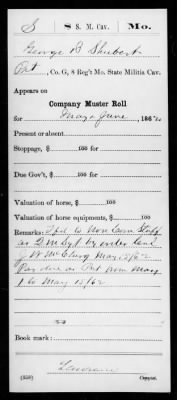 S 8 S. M. Cav. Mo.
George B Shubert
Pvt, Co. G, 8 Reg't Mo. State Militia Cav.
Appears on
Company Muster Roll
for May & June, 1862.
Present or absent
Stoppage, $ 100 for
Due Gov't, $ 100 for
Valuation of horse, $ 100
Valuation of horse equipments, $ 100
Remarks: Tfd to Non Com Staff
as Q M Sgt by order Lieut
J W McClurg May 15/62
Pay due as Pvt from May
1 to May 15/62
Book mark:
(858) Copyist.